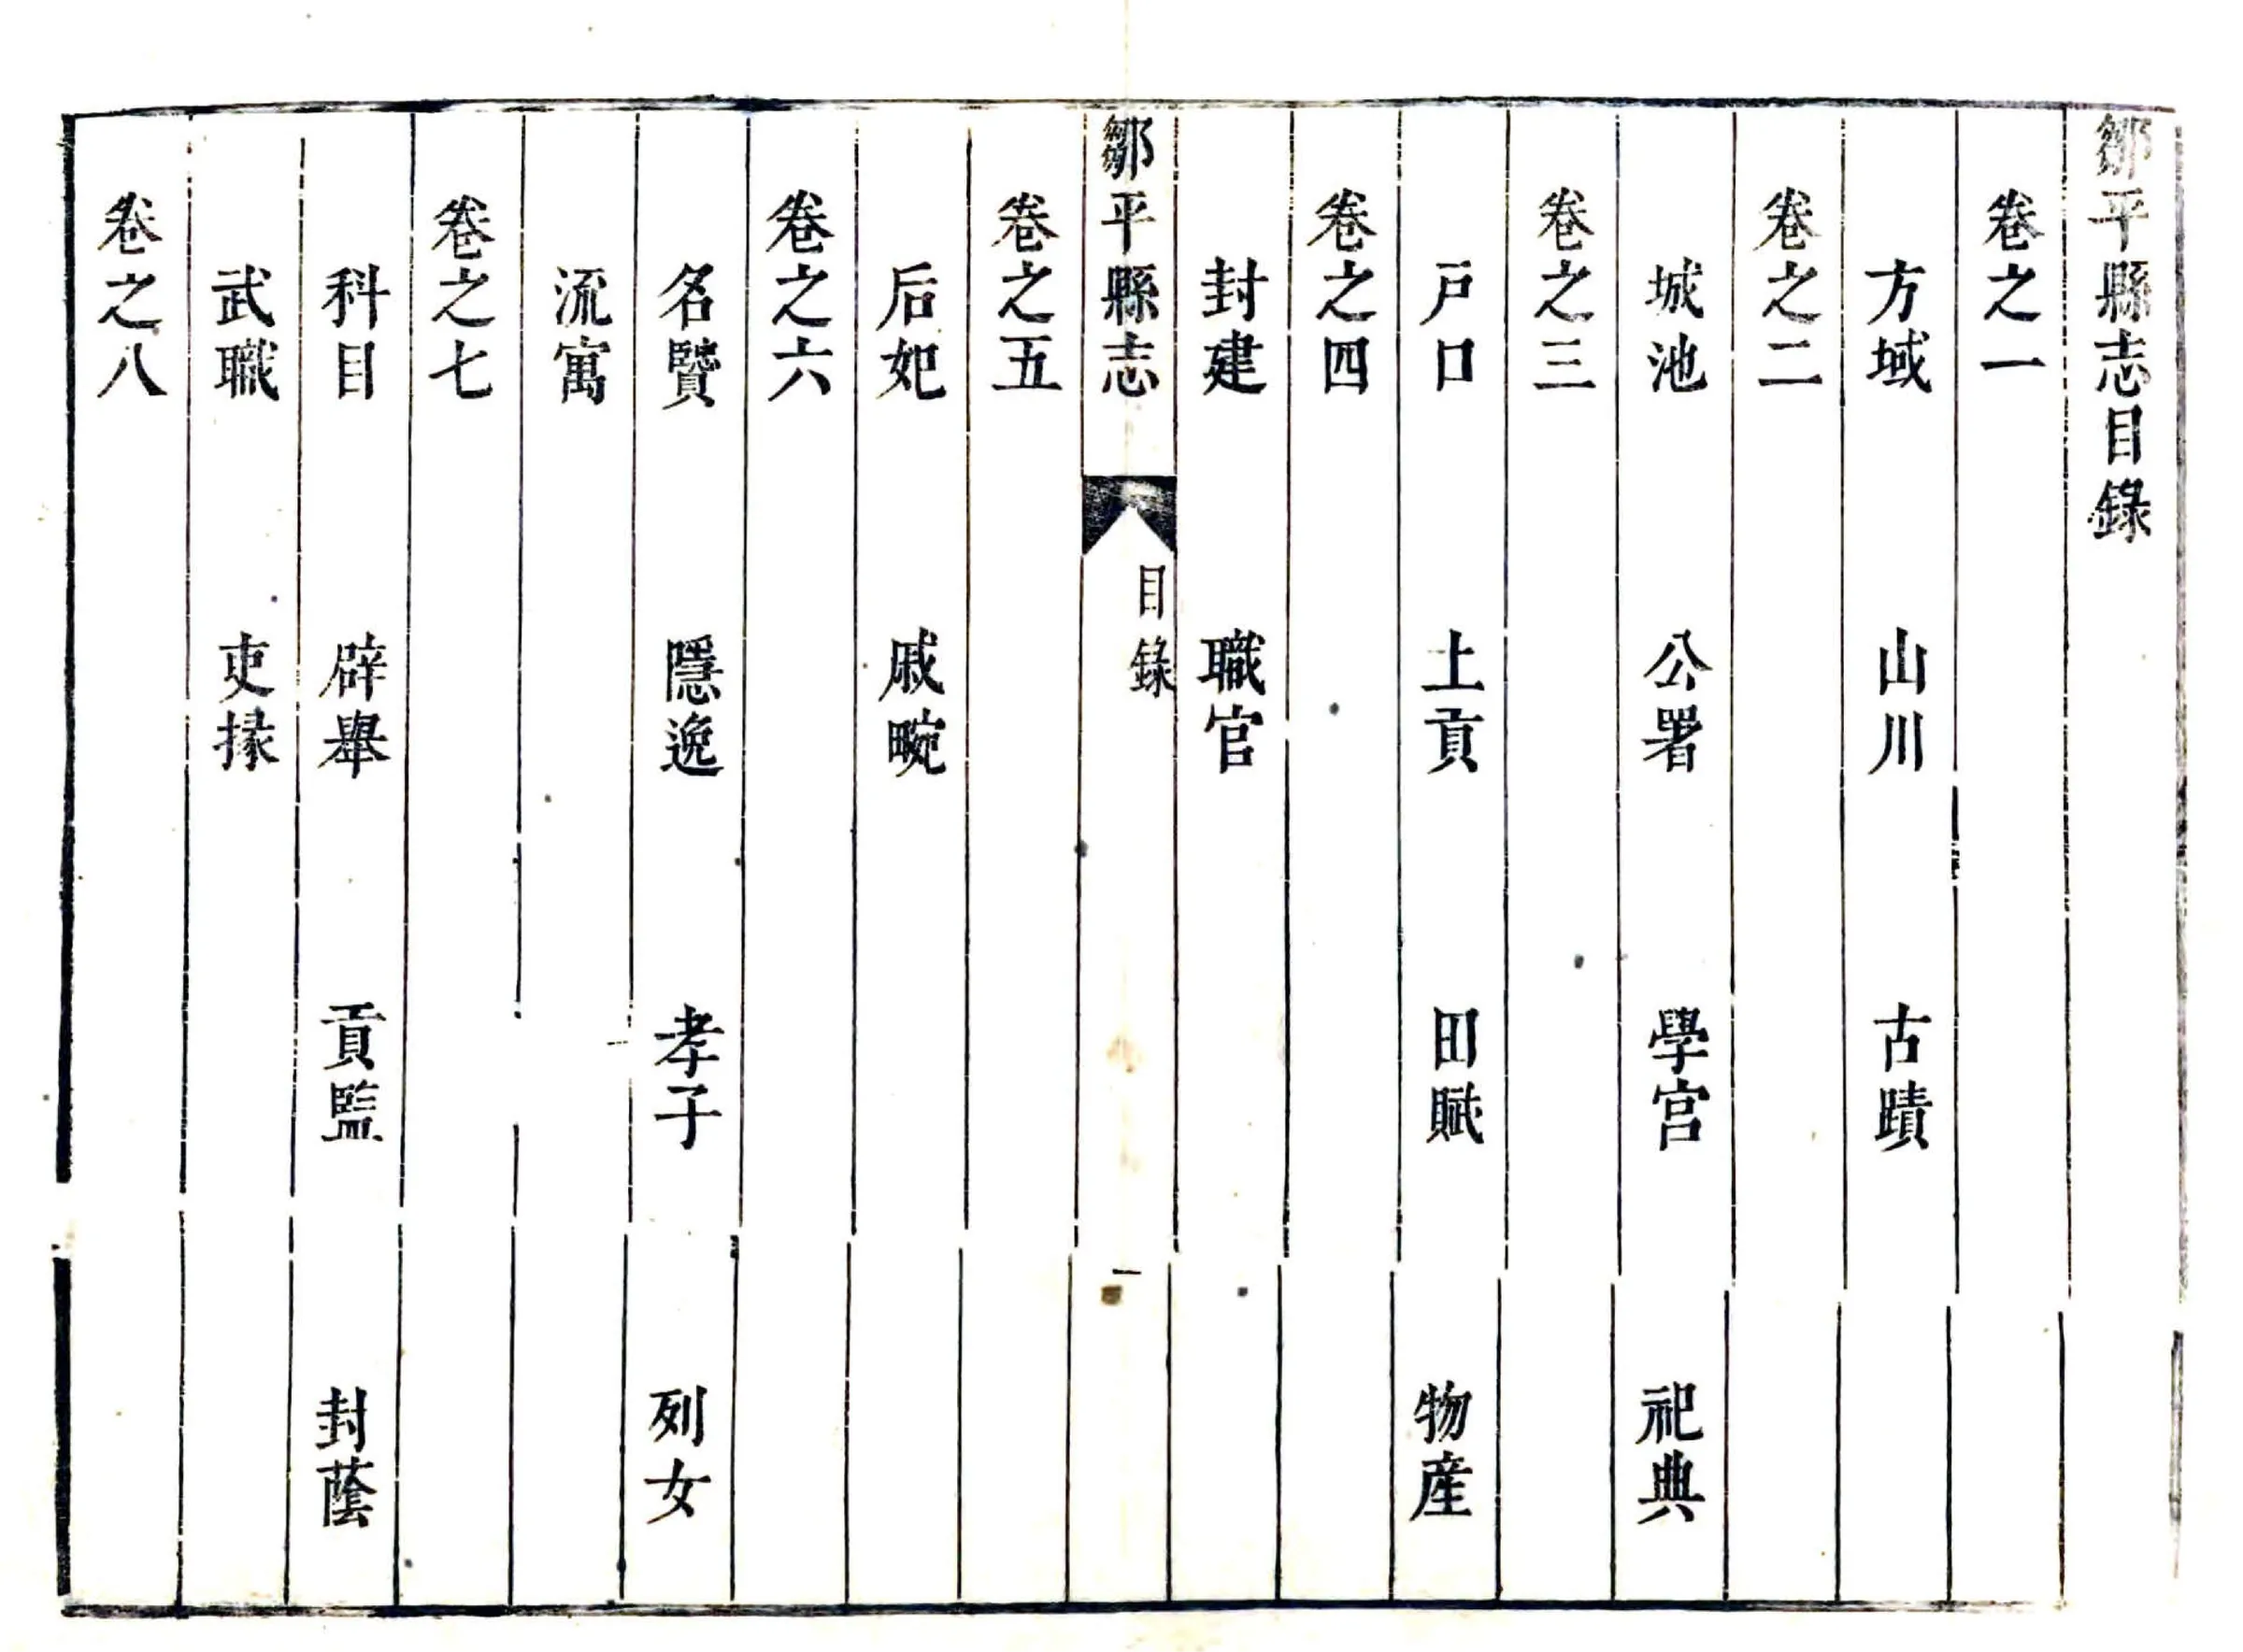 鄒平縣志目錄
卷之一
方域 山川 古蹟
卷之二
城池 公署 學宮 祀典
卷之三
戸口 土貢 田賦 物産
卷之四
封建 職官
鄒平縣志 目錄 一
卷之五
后妃 戚畹
卷之六
名賢 隱逸 孝子 列女
流寓
卷之七
科目 辟舉 貢監 封蔭
武職 吏掾
卷之八